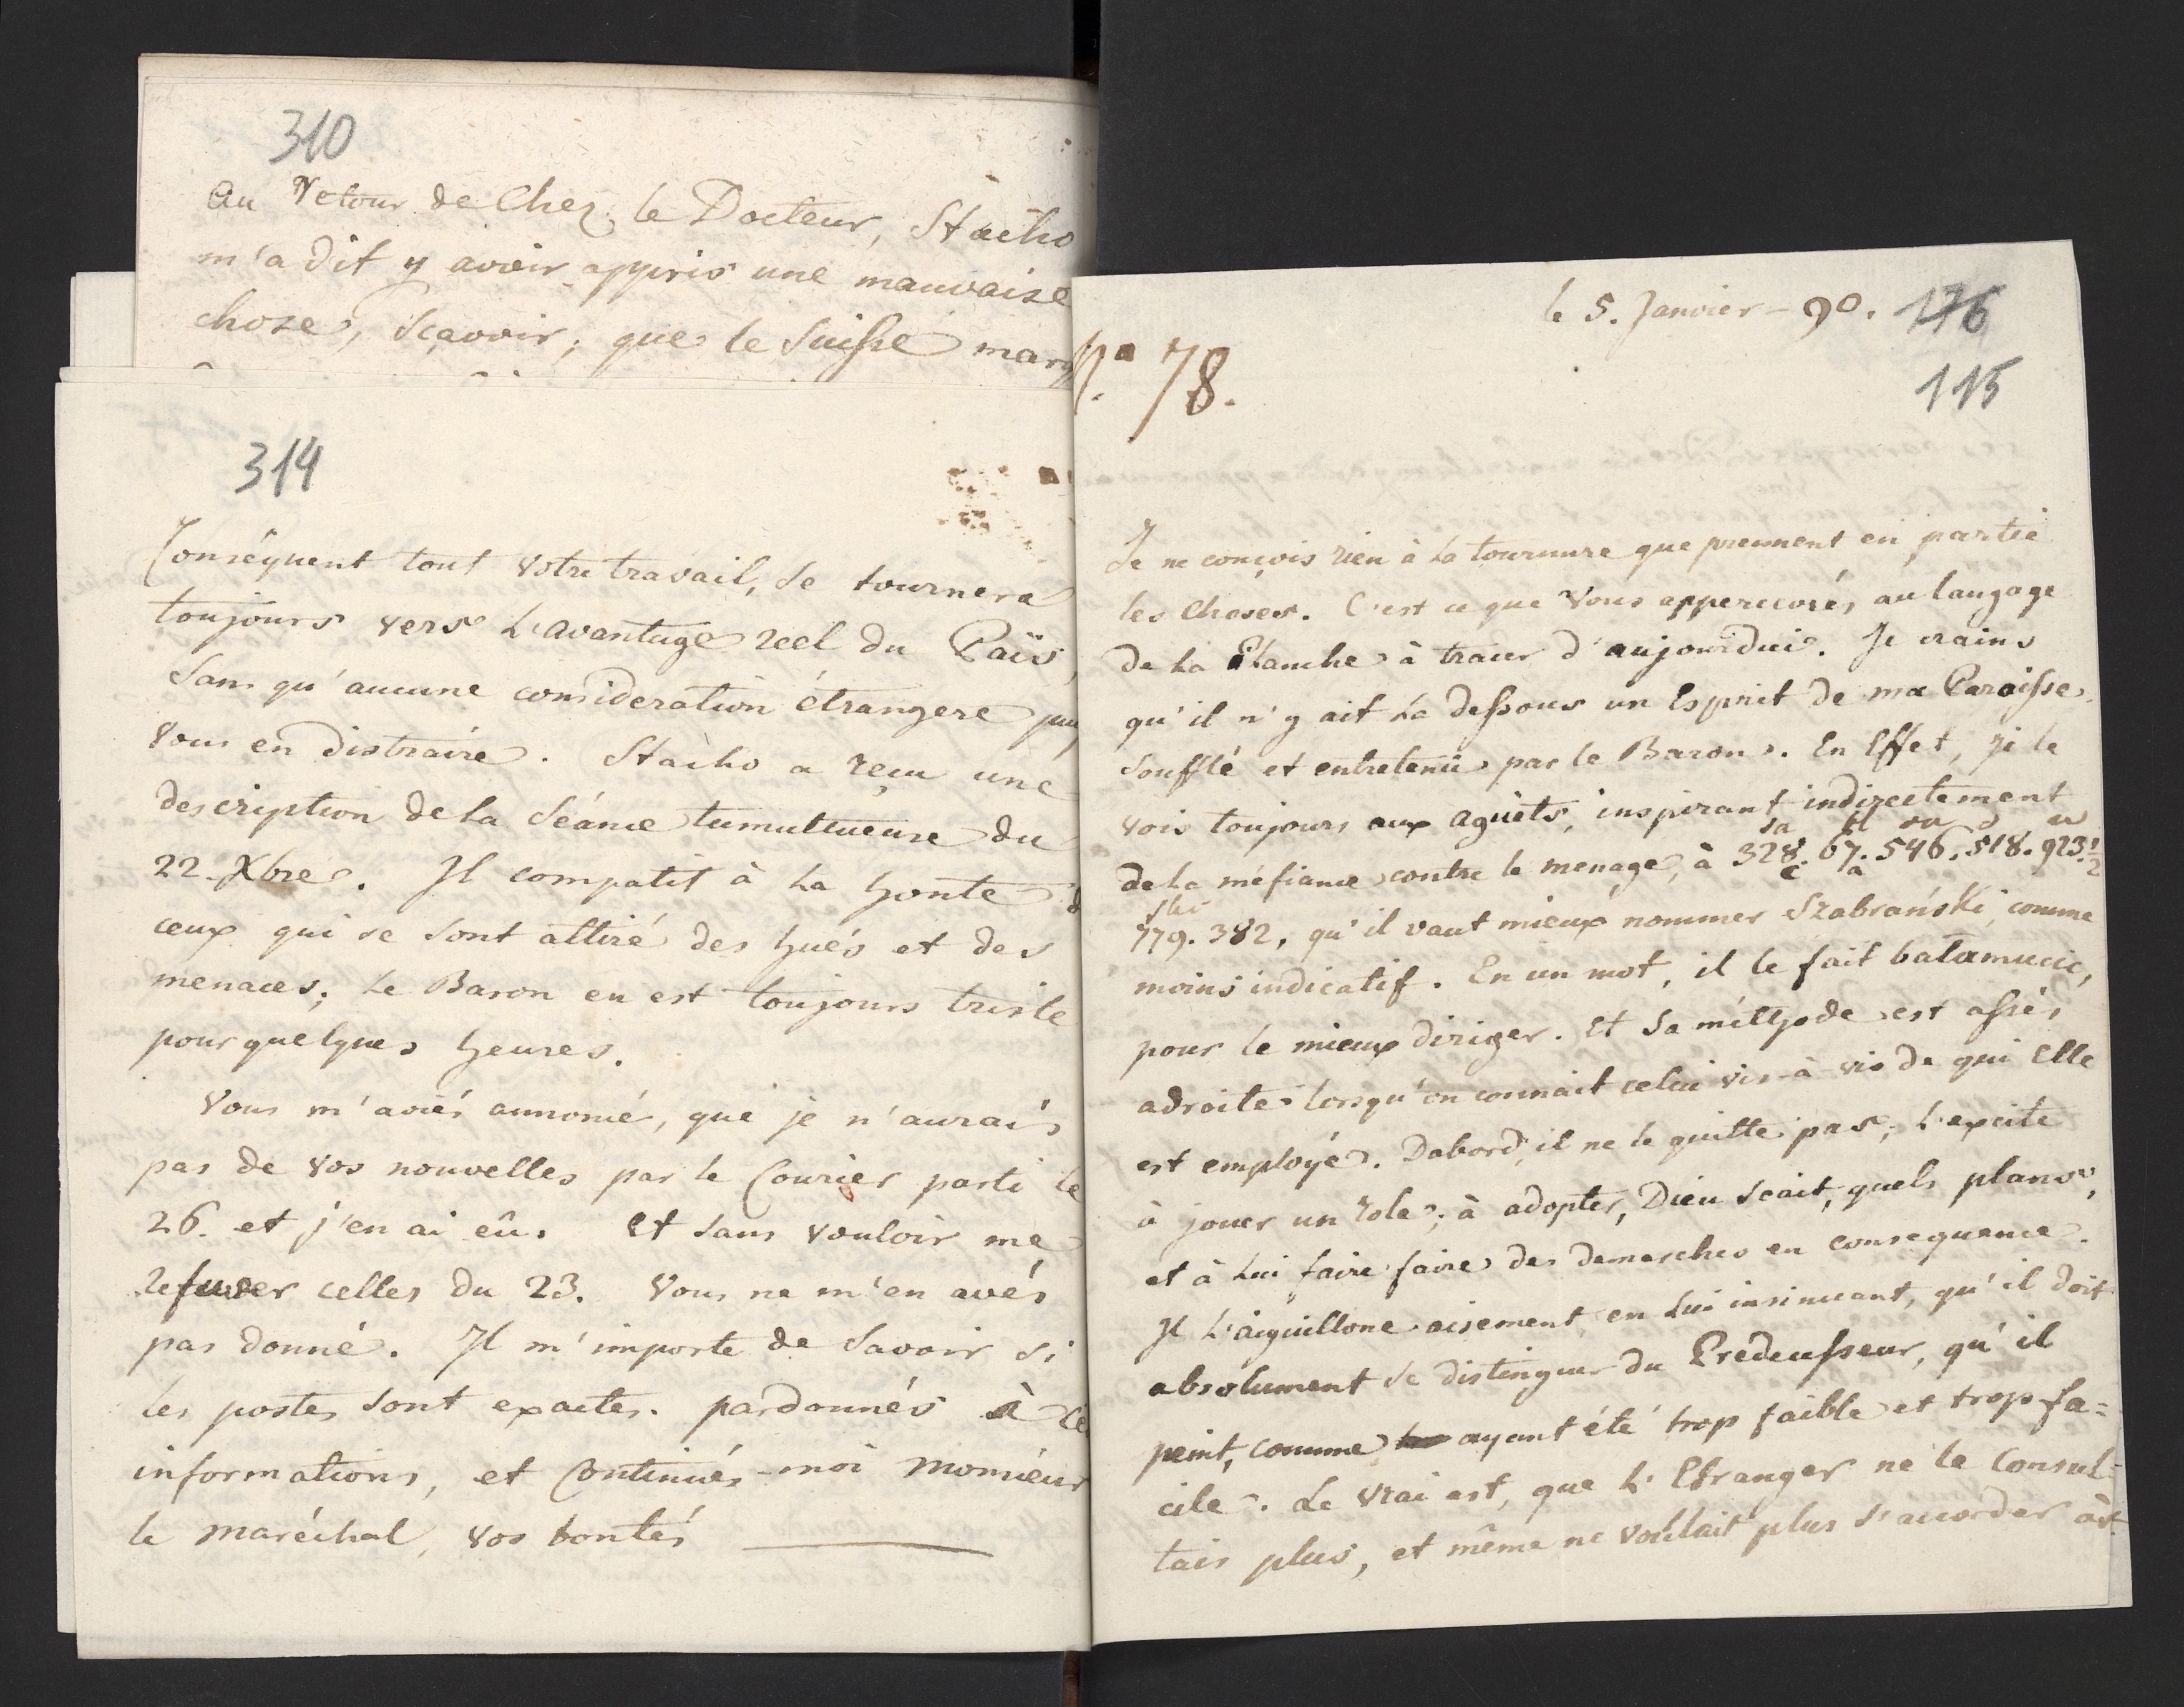 310
Au Retour de Chez le Docteur, Staiho
m'a dit y avoir appris une mauvaise
chose, Sçavoir, que le Suisse man
314
Conséquent tout votre travail, se tournera
toujours vers L'avantage reel du Païs,
Sans qu'aucune consideration étrangere
vous en distraire. Staiho a reçu une
description de la Séance tumultueuse du
22. Xbre. Il compatit à La honte
ceux qui se sont attiré des hués et des
menaces; Le Baron en est toujours triste
pour quelques heures.
Vous m'aviés annoncé, que je n'aurais
pas de vos nouvelles par le Courier parti le
26. et j'en ai eû. Et sans vouloir me
refuser celles du 23. Vous ne m'en avés
pas donné. Il m'importe de Savoir si
les postes sont exactes. pardonnés à ce
informations, et Continués-moi Monsieur
le maréchal, vos bontés
le 5. Janvier - 90. 176
115
N.o 78.
Je ne conçois rien à La tournure que prennent en partie
les choses. C'est ce que Vous appercevrés au langage
de La Planche à tracer d'aujourdui. Je crains
qu'il n'y ait La dessous un Esprit de ma Paroisse,
soufflé et entretenu par le Baron. En Effet, je le
vois toujours aux aguets, inspirant indirectement
de la méfiance contre le menage, à 328. 67. 546. 518. 923½
779. 382, qu'il vaut mieux nommer Szabrański, comme
moins indicatif. En un mot, il le fait bałamucic,
pour le mieux diriger. Et sa méthode est assés
adroite lorsqu'on connait celui vis-à-vis de qui Elle
est employée. Dabord, il ne le quitte pas; L'excite
à jouer un role; à adopter, Dieu scait, quels plans,
et à Lui faire faire des demarches en consequence.
Il L'aiguillone aisement en Lui insinuant, qu'il doit
absolument se distinguer du Prédecesseur, qu'il
peint, comme ayant été trop faible et trop fa=
cile. Le vrai est, que L'Etranger ne le Consul=
tais plus, et même ne voulait plus s'accorder